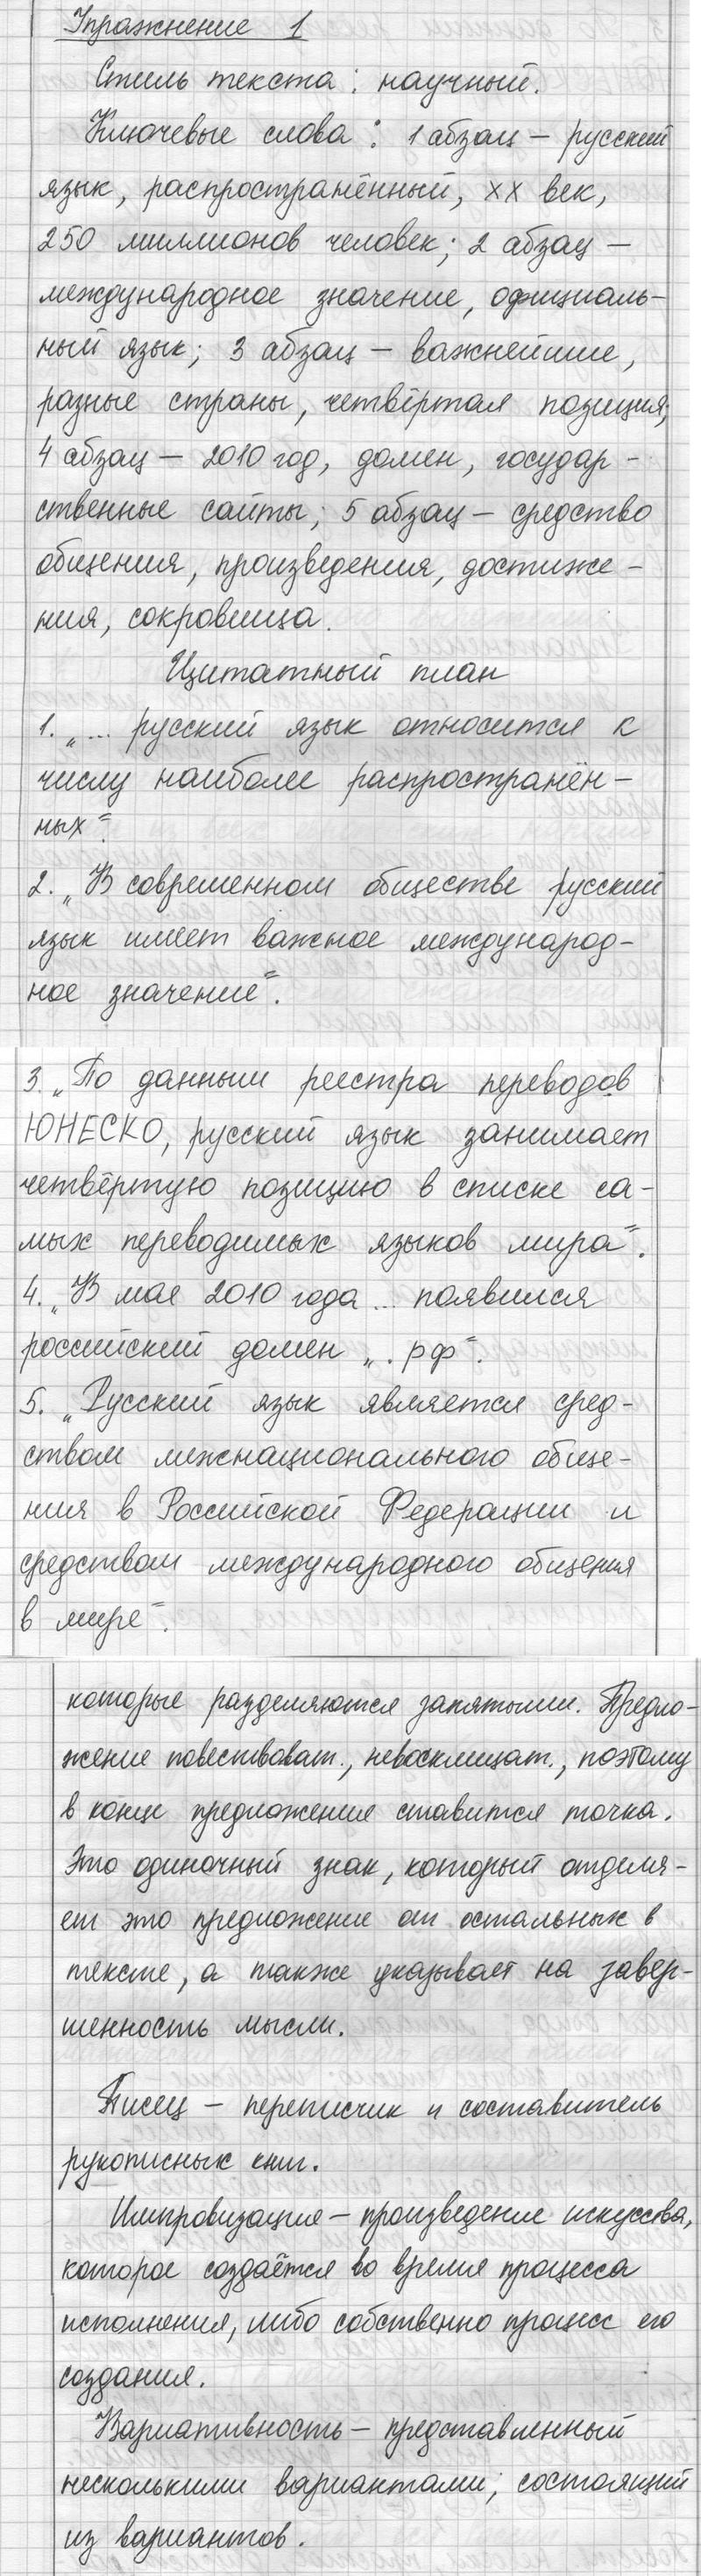 Упражнение 1
Стиль текста: научный.
Ключевые слова: 1 абзац – русский
язык, распространённый, XX век,
250 миллионов человек; 2 абзац –
международное значение, официаль-
ный язык; 3 абзац – важнейшие,
разные страны, четвёртая позиция;
4 абзац – 2010 год, домен, государ-
ственные сайты; 5 абзац – средство
общения, произведения, достиже-
ния, сокровища.
Цитатный план
1. „... русский язык относится к
числу наиболее распространён-
ных“.
2. „В современном обществе русский
язык имеет важное международ-
ное значение“.
3. „По данным реестра переводов
ЮНЕСКО, русский язык занимает
четвёртую позицию в списке са-
мых переводимых языков мира“.
4. „В мае 2010 года ... появился
российский домен „.рф“.
5. „Русский язык является сред-
ством межнационального обще-
ния в Российской Федерации и
средством международного общения
в мире“.
которые разделяются запятыми. Предло-
жение повествоват., невосклицат., поэтому
в конце предложения ставится точка.
Это одиночный знак, который отделя-
ет это предложение от остальных в
тексте, а также указывает на завер-
шенность мысли.
Писец – переписчик и составитель
рукописных книг.
Импровизация – произведение искусства,
которое создаётся во время процесса
исполнения, либо собственно процесс его
создания.
Вариативность – представленный
несколькими вариантами; состоящий
из вариантов.